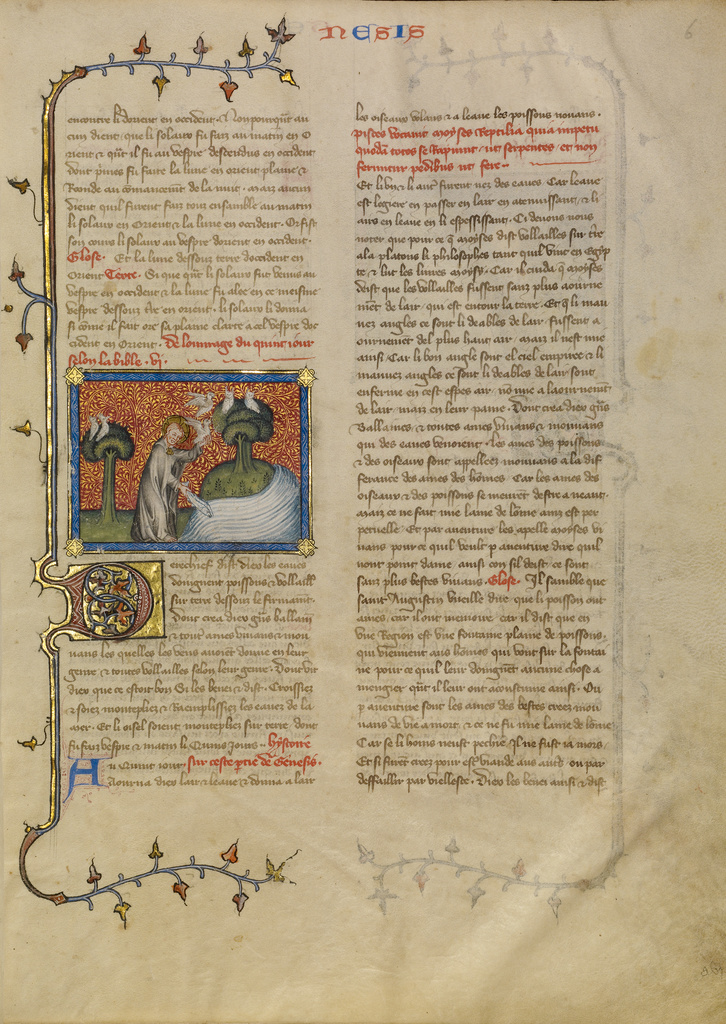 NESIS
6
encontre li dorient en occident. Non pourquãt au
cun dient que li solauz fu faiz au matin en O
rient et quãt il fu au vespre descendus en occident
dont primes fu faite la lune en orient plaine et
Roonde au commancement de la nuit. Maiz aucun
dient quil furent fait tout ensamble au matin
li solauz en Orient et la lune en occident. Or fist
son cours li solauz au vespre dorient en occident.
Glose. Et la lune dessouz terre doccident en
Orient Terre. Si que quãt li solauz fut venus au
vespre en occident et la lune fu aloe en ce meisme
vespre dessouz tre en orient. li solauz li donna
si come il fait ore sa plaine clarte a cel vespre doc
cident en Orient. De louvrage du quint iour
selon la bible. vj.
Derechief dist dieu les eaues
doingnent poissons et vollaill
sur terre dessouz le firmamt.
Donc crea dieu grãs ballainn
et tout ames vivans et mou
vans les quelles les eaues auoiẽt donne en leur
genre et toutes vollailles selon leur genre. Dont vit
dieu que ce estoit bon Si les benei et dist. Croissiez
et soiez montepliez et Raemplissiez les eaues de la
mer. Et li oisel soient montepliez sur terre. dont
fu faiz vespre et matin li Quins jours. hystoire
Au Quint iour. sur ceste ptie de Genesis.
Aourna dieu lair et leaue et donna a lair
les oiseaux volans et a leaue les poissons nouans.
pisces vocant moyses Reptilia quia impetu
quodã totos se Rapiunt ut serpentes et non
feruntur pedibus ut fere.
Et li un et li autre furent nez des eaues. Car leaue
est legiere en passer en lair en atenuissant et li
airs en leaue en li espessissant. Ci deuons nous
noter que pour ce q̃ moyses dist vollailles sur tre
ala platons li philosophes tant quil vint en Egyp
te et lut les liures moysy. Car il cuida q̃ moyses
deist que les vollailles fussent sanz plus aourne
mẽt de lair qui est entour la terre. Et q̃ li mau
uez angles ce sont li deables de lair fussent a
ournement del plus haut air. Maiz il nest mie
ainsi. Car li bon angle sont el ciel empiree et li
mauuez angles ce sont li deables de lair sont
enferme en cest espes air. nõ mie a laournemt
de lair. maiz en leur paine. Dont crea dieu grãs
Ballaines et toutes ames vivans et mouuans
qui des eaues venoient. les ames des poissons
et des oiseaux sont appellees mouuans a la dif
ferance des ames des hõmes. Car les ames des
oiseaux et des poissons se meurẽt destre a neant.
Maiz ce ne fait mie lame de lõme ainz est per
petuelle. Et par auenture les apelle moyses vi
uans pour ce quil veult p auenture dire quil
nont point dame ainsi con sil deist ce sont
sanz plus bestes viuans. Glose. Il samble que
saint Augustin vueille dire que li poisson ont
ames. car il ont memoire. car il dist que en
vne Region est vne fontaine plaine de poissons.
qui viennent aus hõmes qui vont sur la fontai
ne pour ce quil leur doingnẽt aucune chose a
mengier quãt il leur ont acoustume ainsi. Ou
p auenture sont les ames des bestes creez mou
uans de vie a mort. et ce ne fu mie lame de lõme
Car se li hõms neust pechie Il ne fust ia mors.
Et si furẽt creez pour estre viande aus autres ou par
deffaillir par viellesce. Dieu les benei ainsi et dist